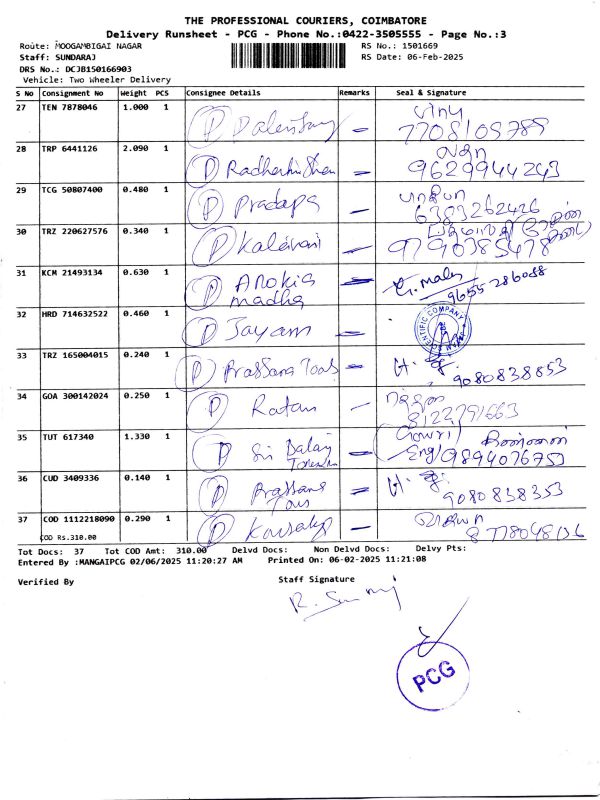 THE PROFESSIONAL COURIERS, COIMBATORE
Delivery Runsheet - PCG - Phone No.:0422-3505555 - Page No.:3
Route: MOOGAMBIGAI NAGAR RS No.: 1501669
Staff: SUNDARAJ RS Date: 06-Feb-2025
DRS No.: DCJB150166903
Vehicle: Two Wheeler Delivery
S No Consignment No Weight PCS Consignee Details Remarks Seal & Signature
27 TEN 7878046 1.000 1 P
7708109789
28 TRP 6441126 2.090 1 P
9629944243
29 TCG 50807400 0.480 1 P Pradapa
6383262426
30 TRZ 220627576 0.340 1 P Kalaivani
9790385478
31 KCM 21493134 0.630 1 P Arokia
madha 9655286088
32 HRD 714632522 0.460 1 P Jayam
33 TRZ 165004015 0.240 1 P Prassana Toos
9080838853
34 GOA 300142024 0.250 1 P Ratan
8122791663
35 TUT 617340 1.330 1 P Sri Balaji Gowri
Engg 9894076753
36 CUD 3409336 0.140 1 P Prassana
Tous 9080838353
37 COD 1112218090 0.290 1 P Kousalya
COD Rs.310.00 8778048136
Tot Docs: 37 Tot COD Amt: 310.00 Delvd Docs: Non Delvd Docs: Delvy Pts:
Entered By :MANGAIPCG 02/06/2025 11:20:27 AM Printed On: 06-02-2025 11:21:08
Verified By Staff Signature
PCG